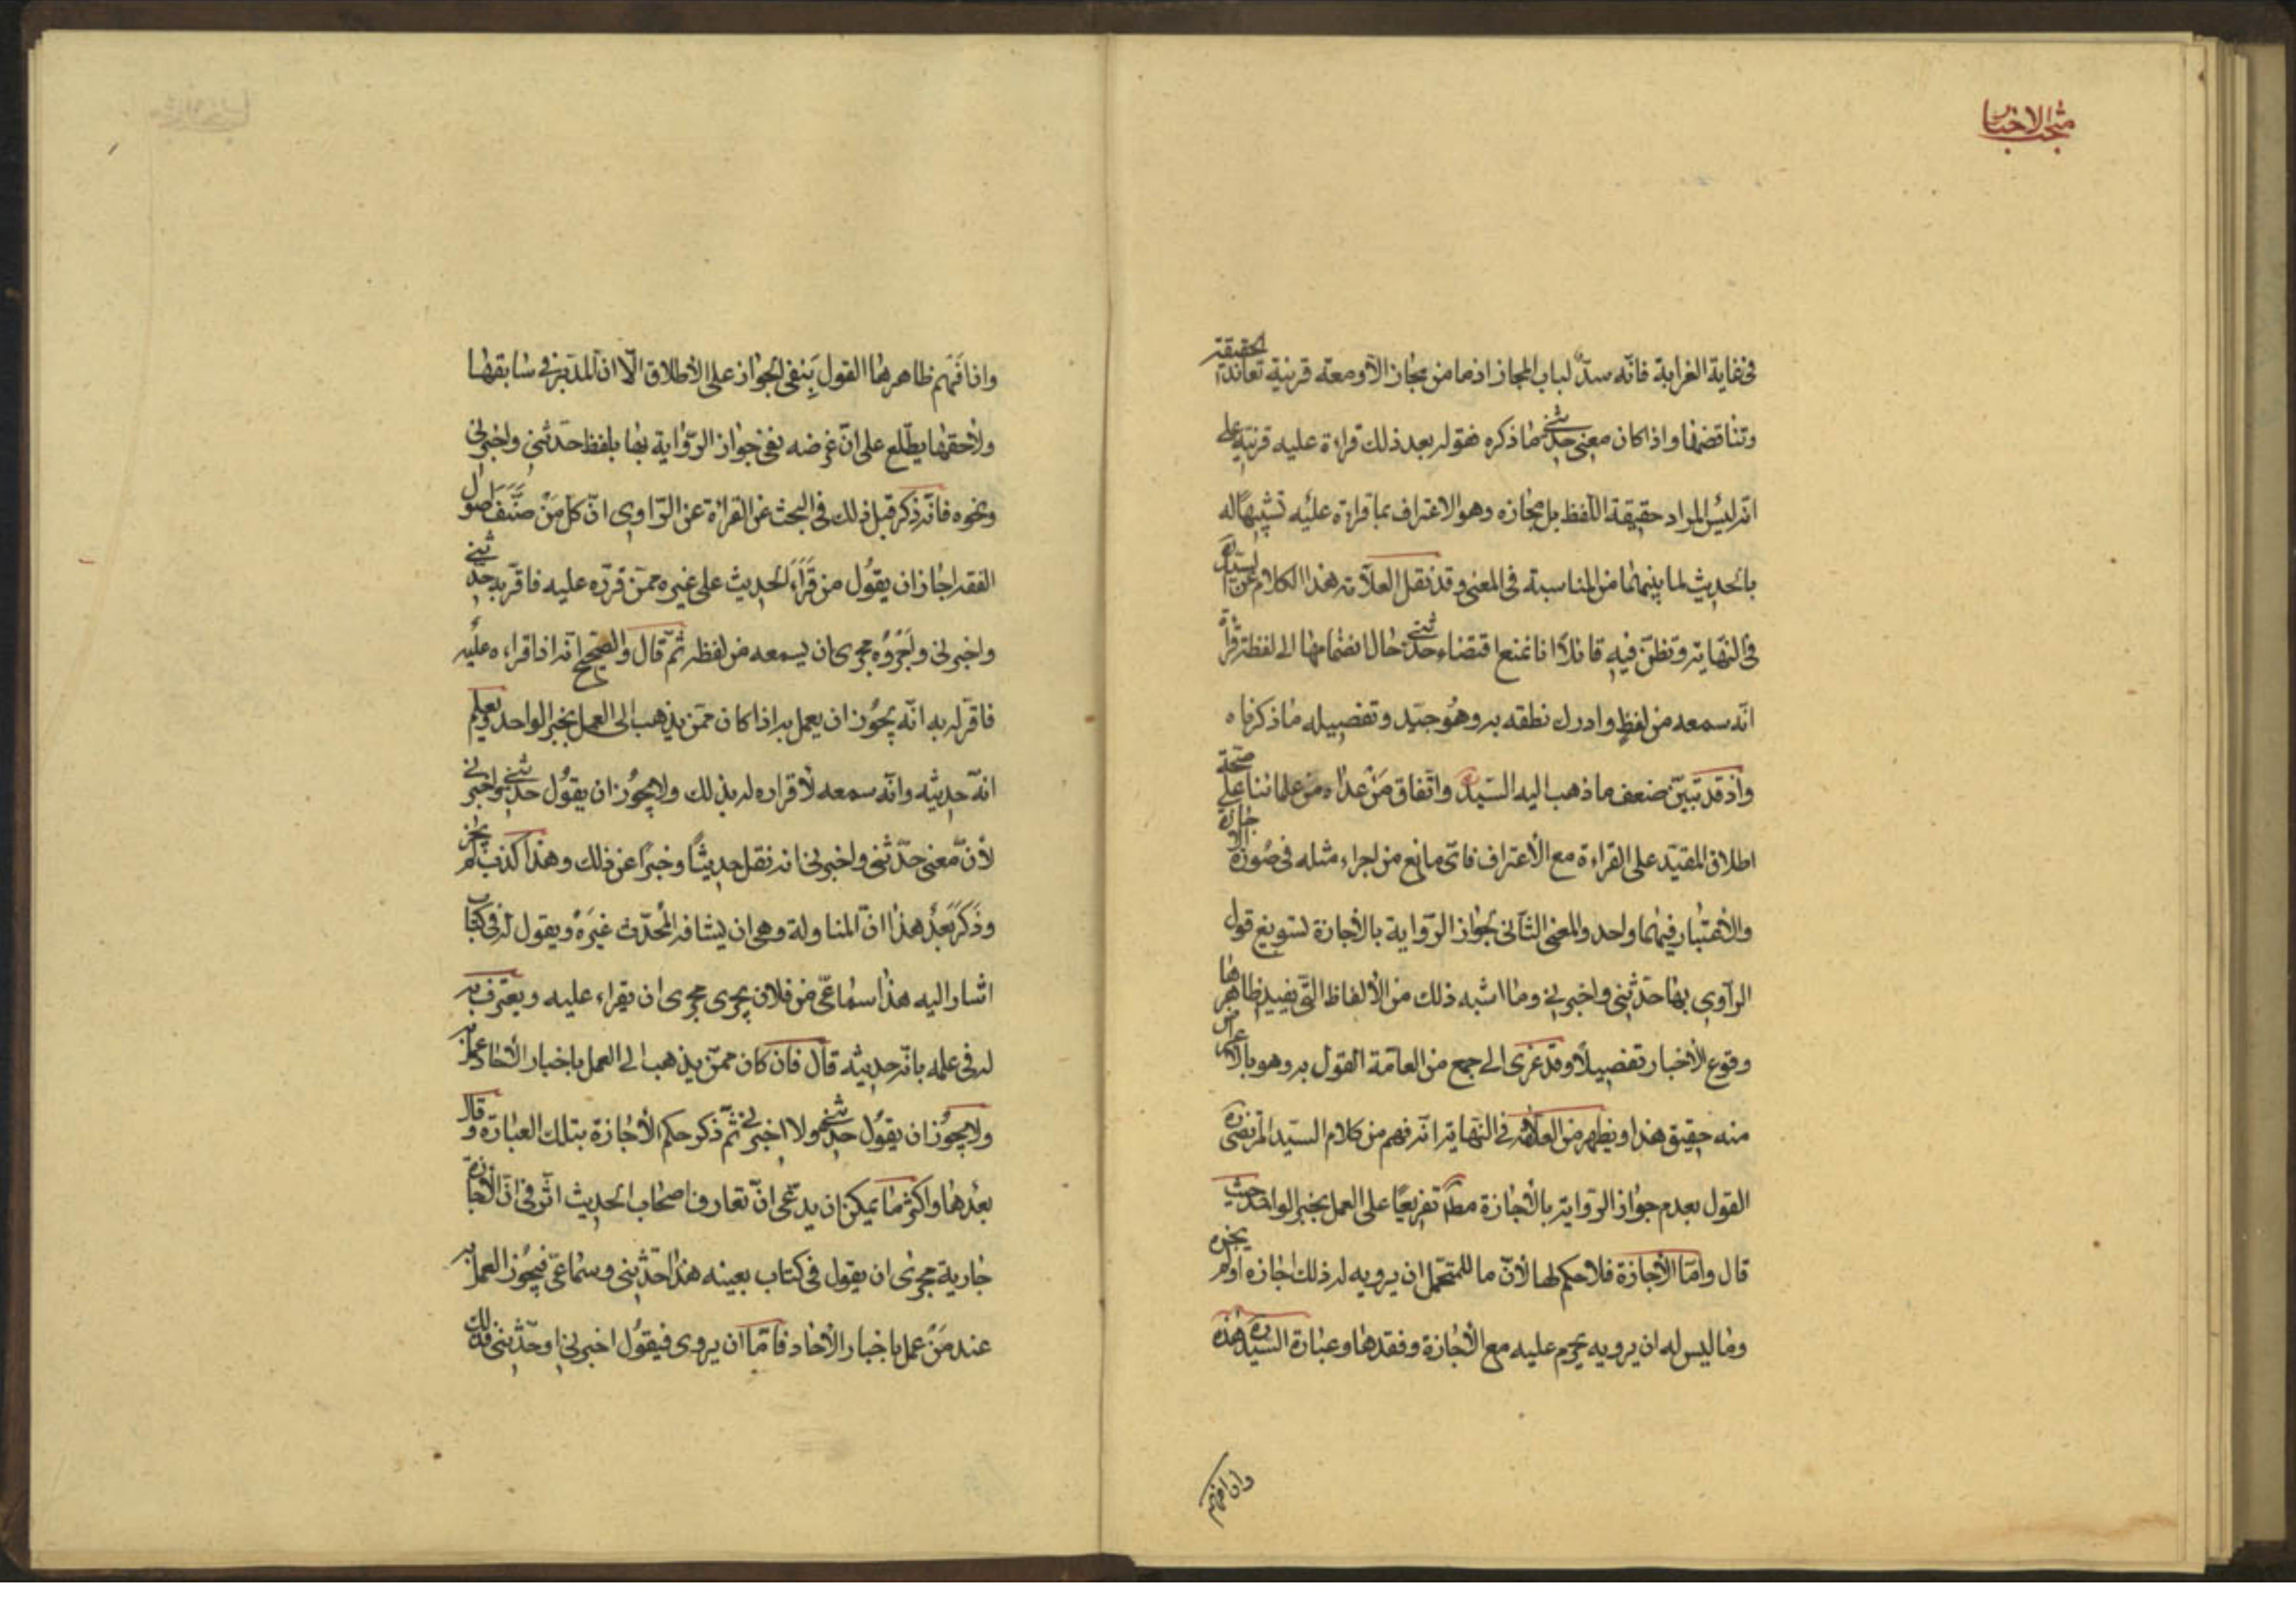 منتخب الاخبار
فى غاية الغرابة فانّه سدّ لباب المجاز اذ ما من مجاز الّا ومعه قرينة تعاند الحقيقة
وتناقضها واذا كان معنى حدثنى ما ذكره فقوله بعد ذلك قراءة عليه قرينة على
انه ليس المراد حقيقة اللفظ بل مجازه وهو الاعتراف بما قراءة عليه تشبيهًا له
بالحديث لما بينهما من المناسبة فى المعنى وقد نقل العلامة هذا الكلام عن السيد ره
فى النهاية وتنظّر فيه قائلًا انا نمنع اقتضاء حدثنى حال انضمامها الى لفظة قراءة
انّه سمعه من لفظ وادرك نطقه به وهو جيّد وتفصيله ما ذكرناه
واذ قد تبيّن ضعف ما ذهب اليه السيد ره واتّفاق من عداه من علمائنا على صحّة
اطلاق المقيّد على القراءة مع الأعتراف فاىّ مانع من اجراء مثله فى صورة الاجازة
والأعتبار فيهما واحد والمعنى الثّانى لجواز الرّواية بالأجازة تسويغ قول
الرّاوى بها حدّثنى واخبرنى وما اشبه ذلك من الألفاظ التى يفيد ظاهرها
وقوع الأخبار تفصيلًا وقد عزى الى جمع من العامّة القول به وهو بالاعراض
منه حقيق هذا ويظهر من العلامة فى النهاية انه فهم من كلام السيد المرتضى ره
القول بعدم جواز الرّواية بالأجازة مط تفريعًا على العمل بخبر الواحد حيث
قال وامّا الأجازة فلا حكم لها لأنّ ما للمتحمّل ان يرويه له ذلك اجازه او لم يجزه
وما ليس له ان يرويه يحرم عليه مع الأجازة وفقدها وعبارة السيد ره هذه
وان افهم
وان افهم ظاهرها القول بنفى الجواز على الأطلاق الّا انّ المدبّر فى سابقها
ولاحقها يطّلع على انّ غرضه نفى جواز الرّواية بها بلفظ حدثنى واخبرنى
ونحوه فانه ذكر قبل ذلك فى البحث عن القراءة عن الرّاوى انّ كلّ من صنّف اصول
الفقه اجاز ان يقول من قرأ الحديث على غيره ممّن قرّره عليه فاقرّ به حدثنى
واخبرنى واجروه مجرى ان يسمعه من لفظه ثمّ قال والصّحيح انه اذا قراءه عليه
فاقرّ له به انّه يجوز ان يعمل به اذا كان ممّن يذهب الى العمل بخبر الواحد ويعلم
انّه حديثه وانّه سمعه لأقراره له بذلك ولا يجوز ان يقول حدثنى واخبرنى
لأنّ معنى حدّثنى واخبرنى انه نقل حديثًا وخبرًا عن ذلك وهذا كذب لم يجز
وذكر بعد هذا انّ المناولة وهى ان يشافه المحدّث غيره ويقول له فى كتاب
اشار اليه هذا سماعى من فلان يجرى مجرى ان يقراء عليه ويعترف به
له فى علمه بانّه حديثه قال فان كان ممّن يذهب الى العمل باخبار الأحاد عمل به
ولا يجوز ان يقول حدثنى ولا اخبرنى ثمّ ذكر حكم الأجازة بتلك العبارة وقال
بعدها واكثر ما يمكن ان يدّعى انّ تعارف اصحاب الحديث اثّر فى انّ الأجازة
جارية مجرى ان يقول فى كتاب بعينه هذا حدّثنى وسماعى فيجوز العمل به
عند من عمل باخبار الأحاد فامّا ان يروى فيقول اخبرنى او حدّثنى فذلك